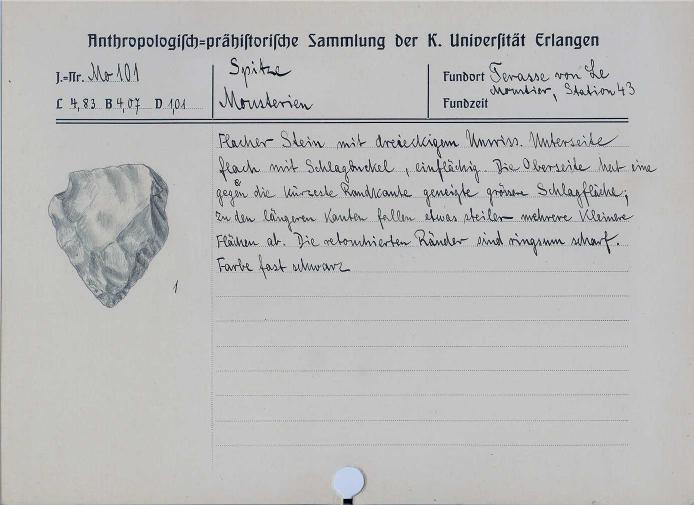 Anthropologisch=prähistorische Sammlung der K. Universität Erlangen
J.=Nr. Mo 101
L 4,83 B 4,07 D 1,01
Spitze
Mousterien
Fundort Terasse von Le
Moustier, Station 43
Fundzeit
Flacher Stein mit dreieckigem Umriss. Unterseite
flach mit Schlagbuckel, einflächig. Die Oberseite hat eine
gegen die kürzeste Randkante geneigte grössere Schlagfläche;
zu den längeren Kanten fallen etwas steiler mehrere Kleinere
Flächen ab. Die retouchierten Ränder sind ringsum scharf.
Farbe fast schwarz
1